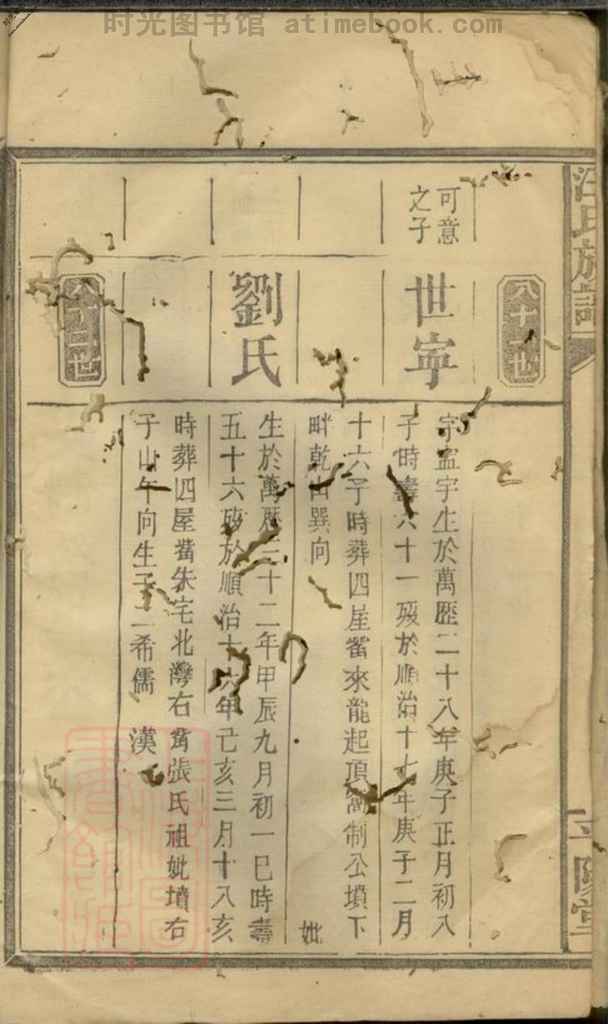 时光图书馆 atimebook.com
汪氏族譜
平陽堂
八十一世
可意
之子
世寧
字孟宇生於萬歷二十八年庚子正月初八
子時壽六十一歿於順治十七年庚子二月
十六子時葬四屋當來龍起頂 制公墳下
畔乾山巽向 妣
劉氏
生於萬歷三十二年甲辰九月初一巳時壽
五十六歿於順治十六年己亥三月十八亥
時葬四屋當朱宅北灣右角張氏祖妣墳右
子山午向生子二希儒 漢
八十二世